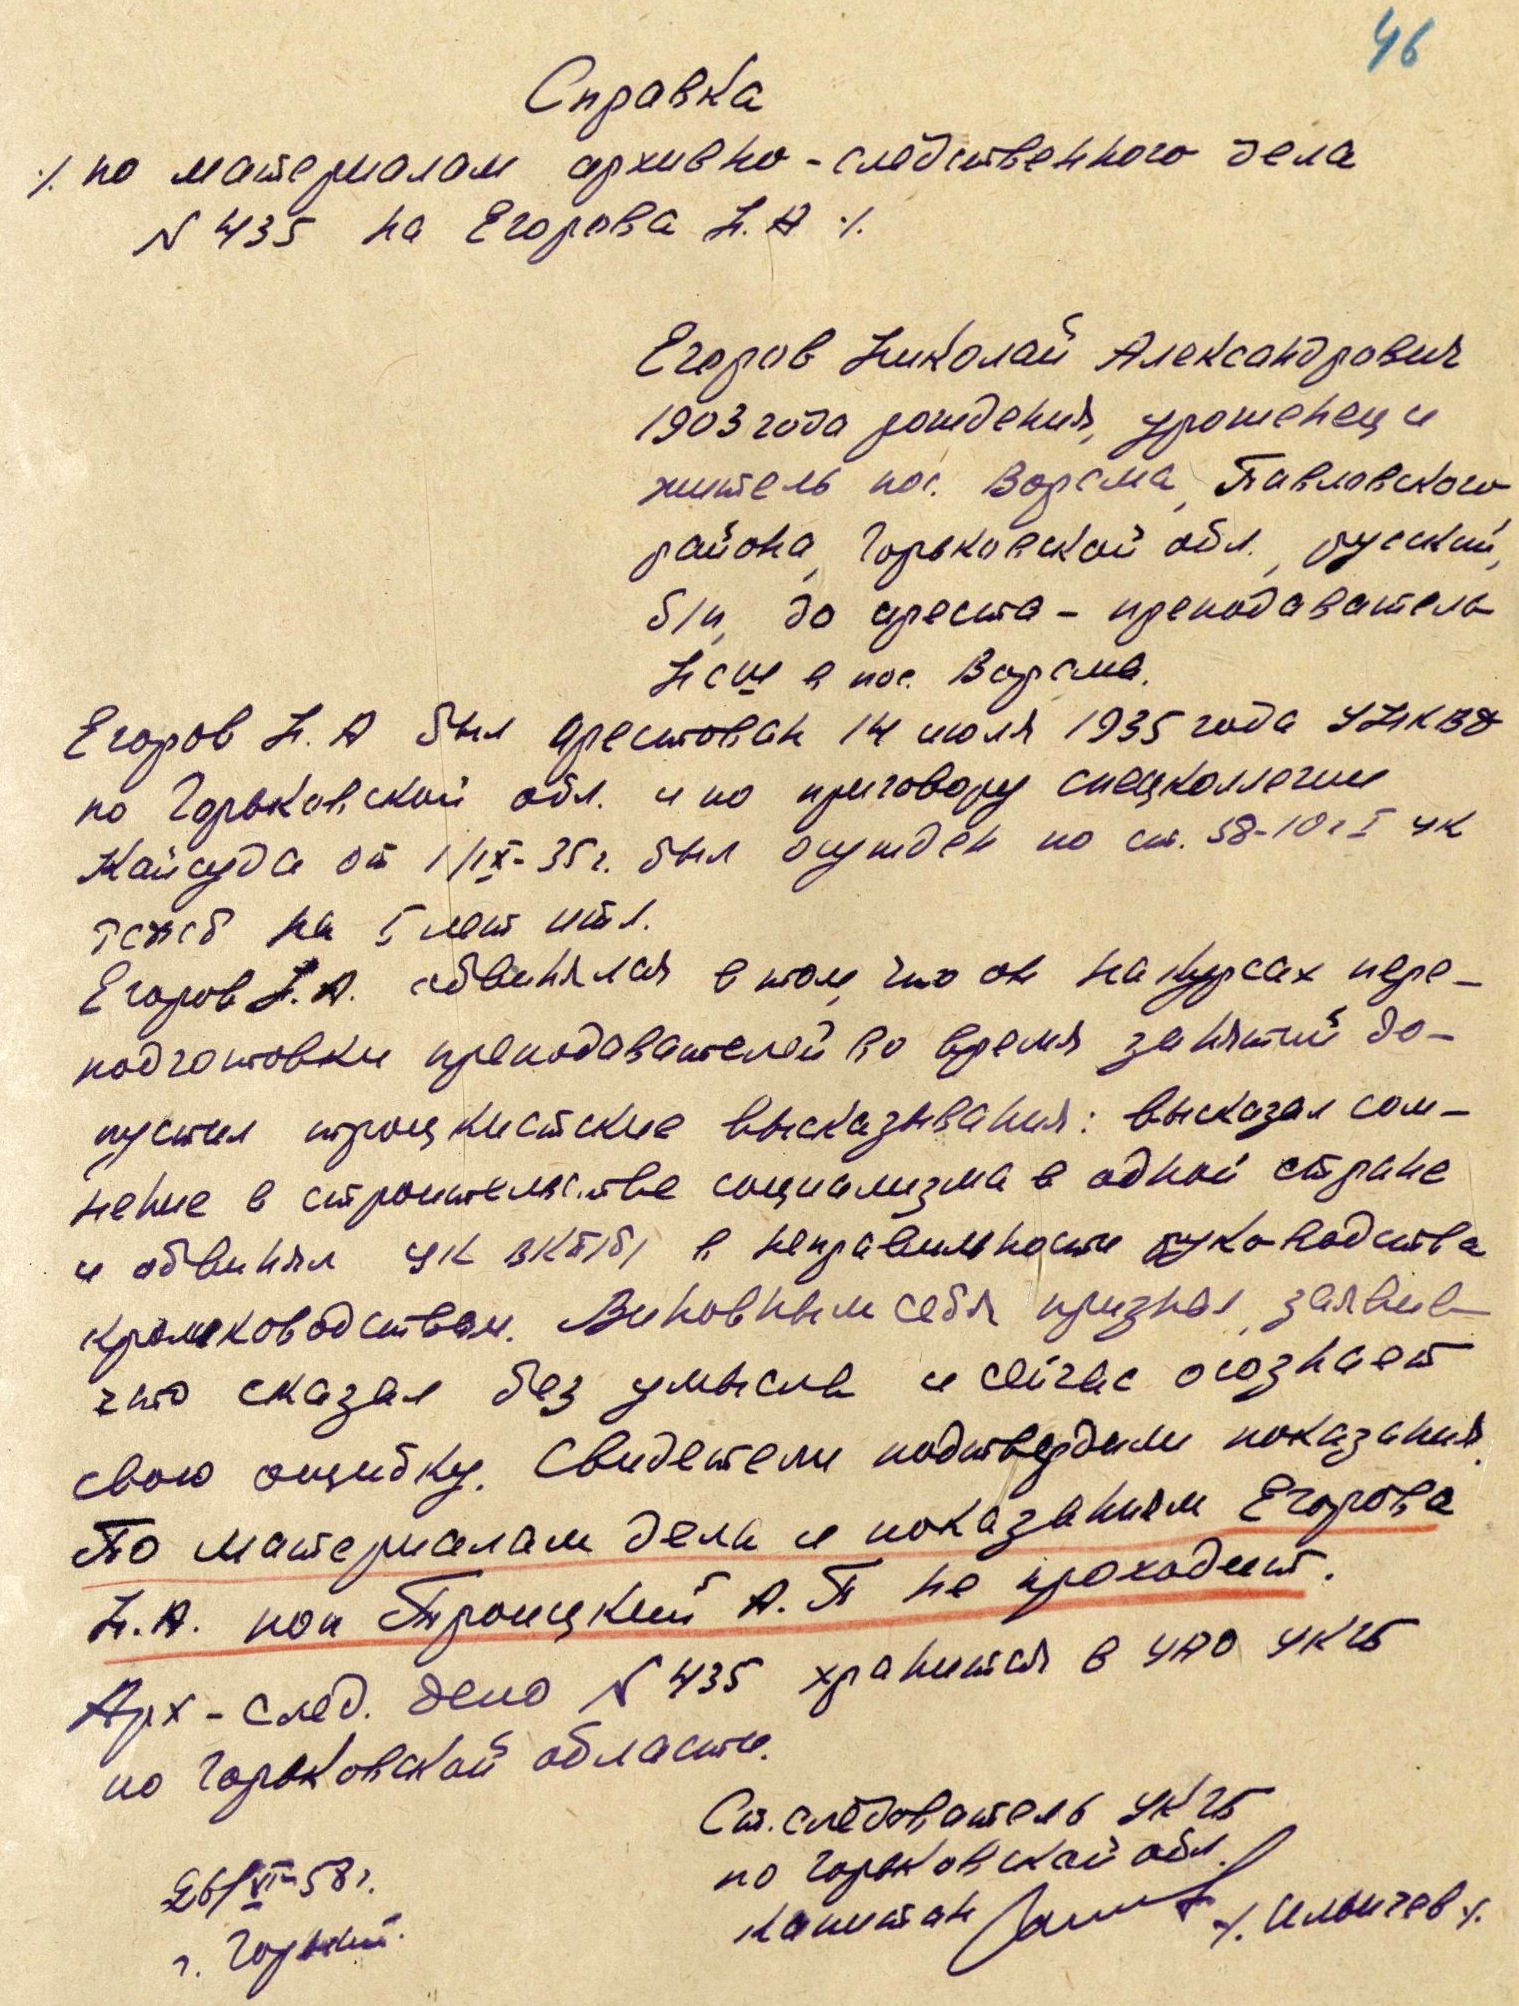 46
Справка
./. по материалам архивно-следственного дела
N 435 на Егорова Н.А ./.
Егоров Николай Александрович
1903 года рождения, уроженец и
житель пос. Ворсма, Павловского
района, Горьковской обл., русский,
б/п, до ареста - преподаватель
НСШ в пос. Ворсма.
Егоров Н.А был арестован 14 июля 1935 года УНКВД
по Горьковской обл. и по приговору спецколлегии
Крайсуда от 1/IX-35г. был осужден по ст. 58-10 ч I УК
РСФСР на 5 лет итл.
Егоров Н.А. обвинялся в том, что он на курсах пере-
подготовки преподавателей во время занятий до-
пустил троцкистские высказывания: высказал сом-
нение в строительстве социализма в одной стране
и обвинял ЦК ВКП/б/ в неправильности руководства
кролиководством. Виновным себя признал, заявив
что сказал без умысла и сейчас осознает
свою ошибку. Свидетели подтвердили показания.
По материалам дела и показаниям Егорова
Н.А. поп Троицкий А.П не проходит.
Арх-след. дело N 435 хранится в УАО УКГБ
по Горьковской области.
Ст. следователь УКГБ
по Горьковской обл.
Капитан ./. Ильичев ./.
26/VI-58г.
г. Горький.